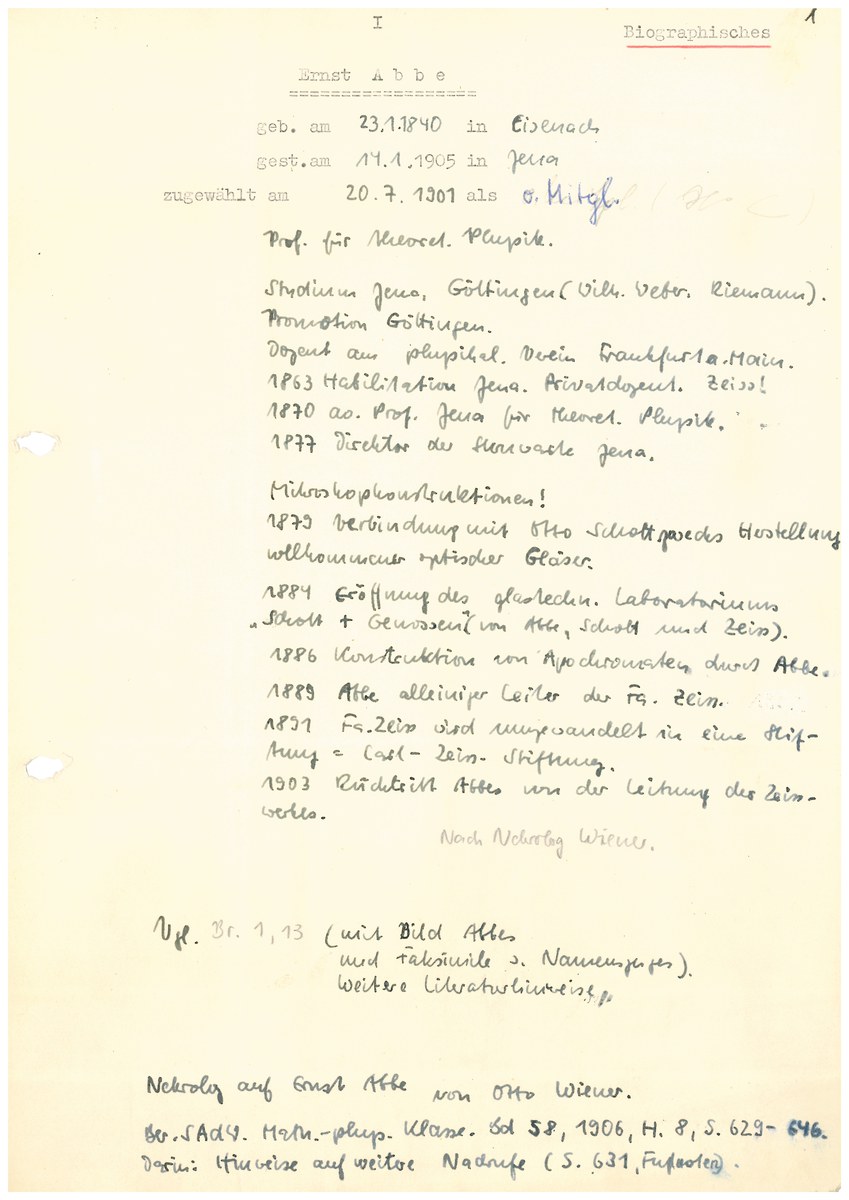 I
1
Biographisches
Ernst Abbe
geb. am 23.1.1840 in Eisenach
gest. am 14.1.1905 in Jena
zugewählt am 20.7.1901 als o. Mitgl.
Prof. für theoret. Physik.
Studium Jena, Göttingen (Wilh. Weber. Riemann).
Promotion Göttingen.
Dozent am physikal. Verein Frankfurt a. Main.
1863 Habilitation Jena. Privatdozent. Zeiss!
1870 ao. Prof. Jena für theoret. Physik.
1877 Direktor der Sternwarte Jena.
Mikroskopkonstruktionen!
1879 Verbindung mit Otto Schott zwecks Herstellung
vollkommener optischer Gläser.
1884 Eröffnung des glastechn. Laboratoriums
"Schott + Genossen" (von Abbe, Schott und Zeiss).
1886 Konstruktion von Apochromaten durch Abbe.
1889 Abbe alleiniger Leiter der Fa. Zeiss.
1891 Fa. Zeiss wird umgewandelt in eine Stif-
tung = Carl-Zeiss-Stiftung.
1903 Rücktritt Abbes von der Leitung der Zeiss-
werkes.
Nach Nekrolog Wiener.
Vgl. Br. 1, 13 (mit Bild Abbes
und Faksimile s. Namenszuges).
Weitere Literaturhinweise.
Nekrolog auf Ernst Abbe von Otto Wiener.
Ber. SAdW. Math.-phys. Klasse. Bd 58, 1906, H. 8, S. 629-646.
Darin: Hinweise auf weitere Nachrufe (S. 631, Fußnoten).